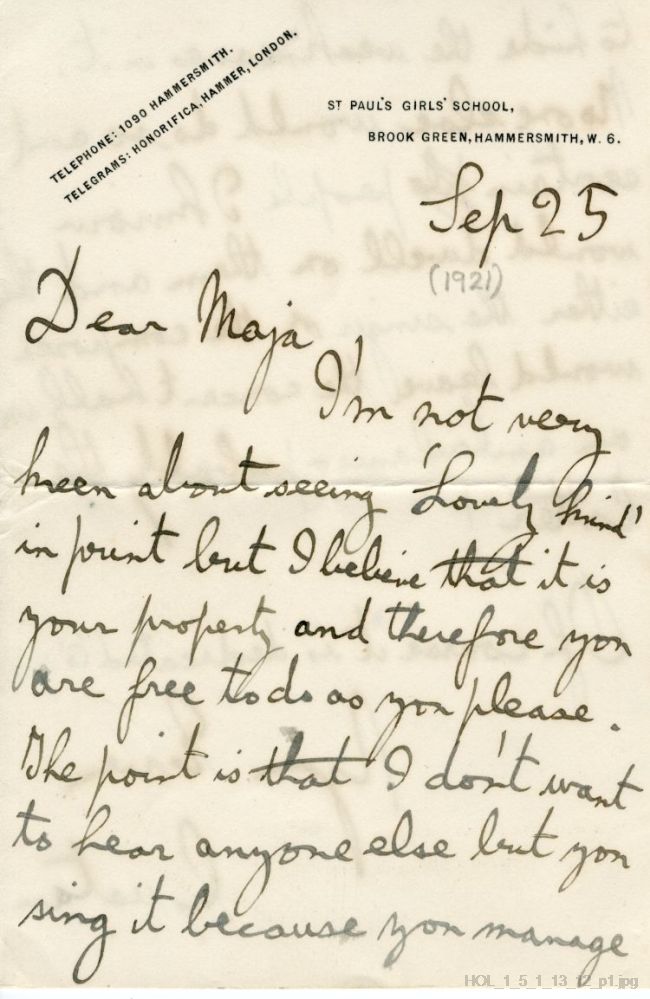 TELEPHONE: 1090 HAMMERSMITH.
TELEGRAMS: HONORIFICA, HAMMER, LONDON.
ST PAUL'S GIRLS' SCHOOL,
BROOK GREEN, HAMMERSMITH, W. 6.
Sep 25
(1921)
Dear Maja
I'm not very
keen about seeing 'Lovely kind'
in print but I believe that it is
your property and therefore you
are free to do as you please.
The point is that I don't want
to hear anyone else but you
sing it because you manage
HOL_1_5_1_13_12_p1.jpg